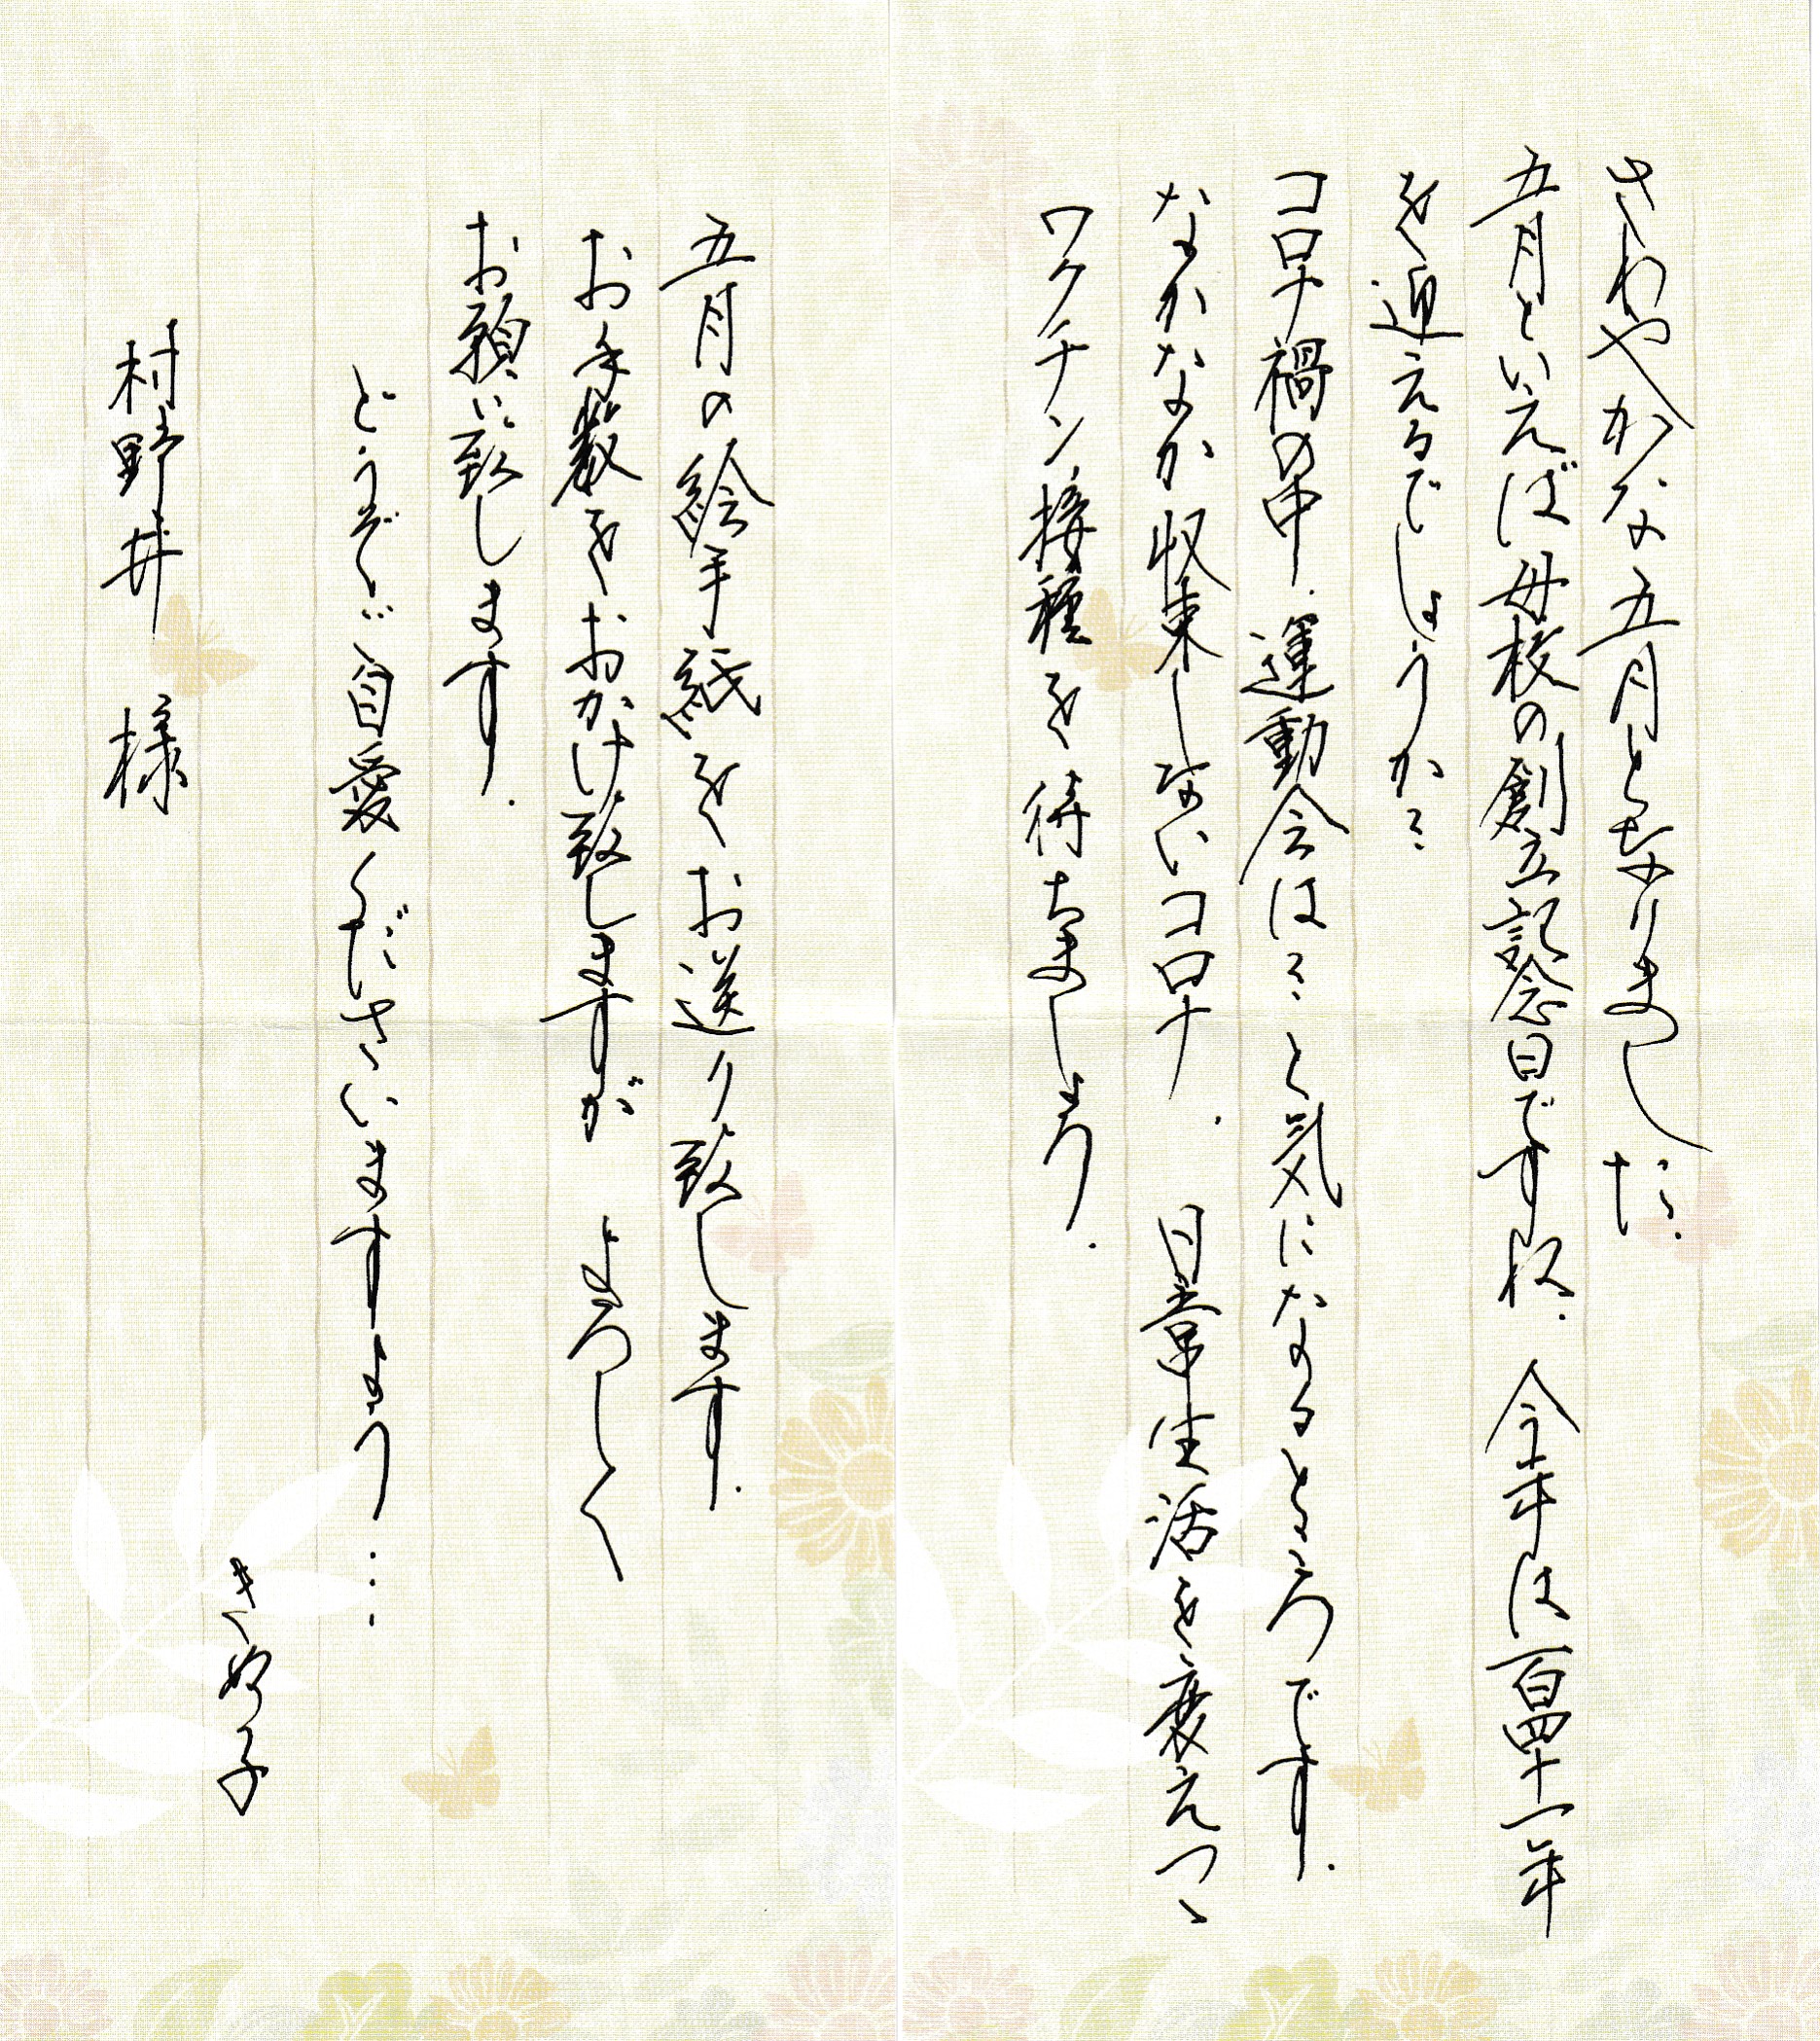 さわやかな五月となりました.
五月といえば母校の創立記念日ですね. 今年は百四十一年
を迎えるでしょうか?
コロナ禍の中. 運動会は?と気になるところです.
なかなか収束しないコロナ. 日常生活を変えつゝ
ワクチン接種を待ちましょう.
五月の絵手紙をお送り致します.
お手数をおかけ致しますが よろしく
お願い致します.
どうぞご自愛くださいますよう...
きぬ子
村野井 様